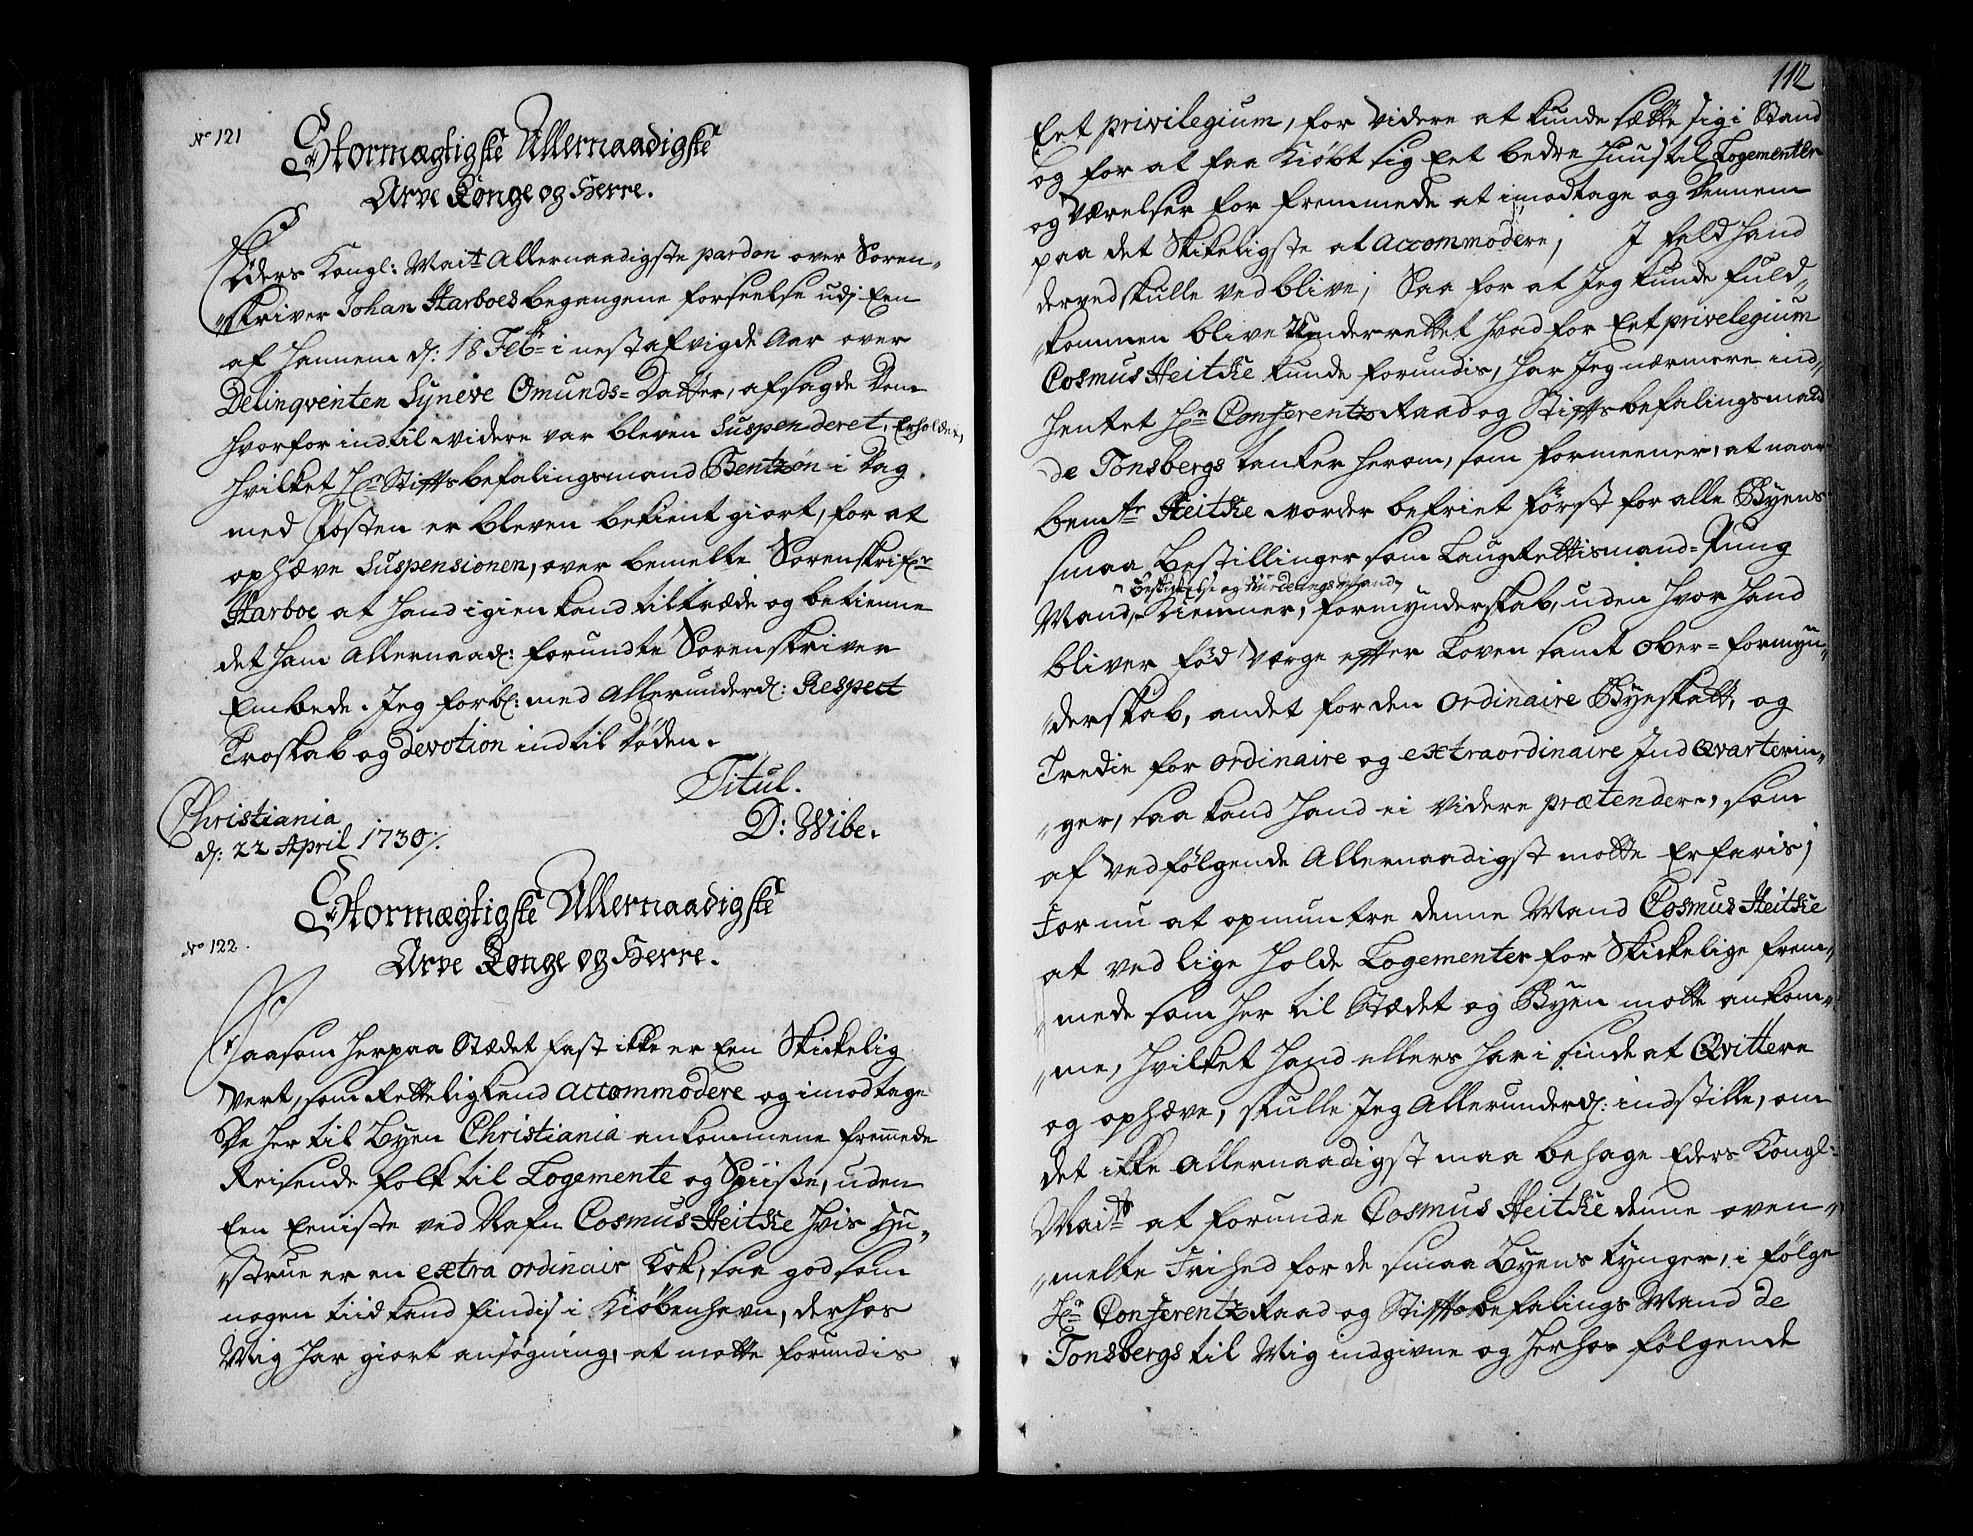 No 121
Stormægtigste Allernaadigste
Arve Konge og Herre.
Eders Kongl: Maitz Allernaadigste pardon over Soren-
skriver Johan Harboes begangene forseelse udj Een
af Hannem d: 18 Febr: i nestafvigde Aar over
Delinqventen Syneve Omunds-Datter, afsagde Dom
hvorfor indtil videre var bleven Suspenderet, Erholdes,
hvilket Hr: Stiftsbefalingsmand Bentzøn i Dag
med Posten er bleven bekient giort, for at
ophæve Suspensionen, over bemelte Sorenskrifr
Harboe at Hand igien kand tiltræde og betienne
det ham Allernaad: forundte Sorenskriver
Embede. Jeg forbl: med Allerunderd: Respect
Troskab og devotion indtil døden.
Titul.
D: Wibe.
Christiania
d: 22 April 1730/.
Stormægtigste Allernaadigste
Arve Konge og Herre.
No 122.
Saasom herpaa Stædet fast ikke er Een Skikkelig
Vert, som Retteligkand accommodere og imodtage
De her til Byen Christiania ankommene fremmede
Reisende folk til Logemente og Spiisse, uden
Een Eeniste ved Nafn Cosmus Heitke hvis Hu-
strue er en extra ordinair Kok, saa god som
nogen tiid kand findis i Kiøbenhavn, derhos
Mig har giort ansøgning, at motte forundis
112
Eet privilegium, for videre at kunde sætte sig i Stand
og for at faa Kiøbt sig Eet bedre Huus til Logementer
og Værelser for fremmede at imodtage og dennem
paa det Skikeligste at accommodere; I fald Hand
derved skulle ved blive; Saa for at Jeg kunde fuld-
kommen blive Underrettet hvad for Eet privelegium
Cosmus Heitke kunde forundis, har Jeg nærmere ind-
hentet Hr: Conferentz Raad og Stiftsbefalingsmand
de Tonsbergs tanker herom, som formeener, at naar
bemte Heitke vorder befriet først for alle Byens
smaa Bestillinger som Laugrettismand-Tung
Beskikelse og Vurderings Mand
Mand, Kiemner, formynderskab, uden hvor Hand
bliver fød Værge efter Loven samt over-formyn-
derskab, andet for den ordinaire Byeskatt, og
Tredie for ordinaire og extraordinaire Ind Qvarterin-
ger, saa kand Hand ei videre prætendere, som
af vedfølgende Allernaadigst motte Erfaris;
For nu at opmuntre denne Mand Cosmus Heitke
at ved lige holde Logementer for Skikkelige frem-
mede som her til Stædet og Byen motte ankom-
me, hvilket Hand ellers har i sinde at Qvittere
og ophæve, skulle Jeg Allerunderd: indstille, om
det ikke allernaadigst maa behage Eders Kongl:
Maitt at forunde Cosmus Heitke denne oven-
melte Frihed for de smaa Byens tynger, i følge
Hr: Conferentz Raad og Stiftsbefalings Mand de
Tonsbergs til Mig indgivne og herhos følgende